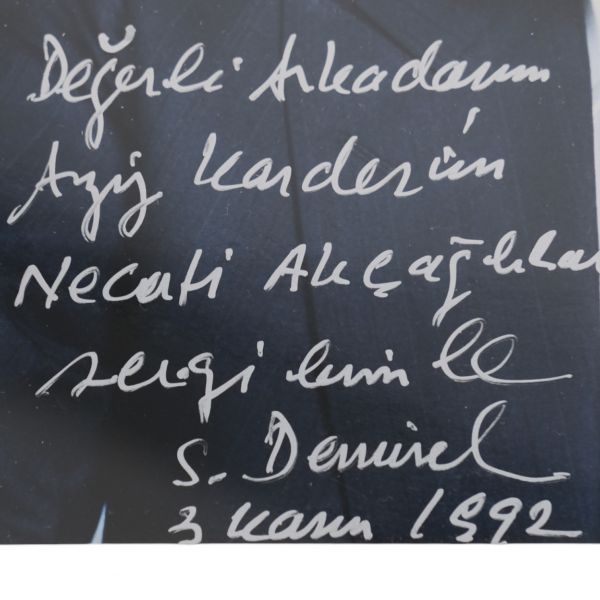 Değerli Arkadaşım
Aziz Kardeşim
Necati Akçağlılar
sevgilerimle
S. Demirel
3 Kasım 1992